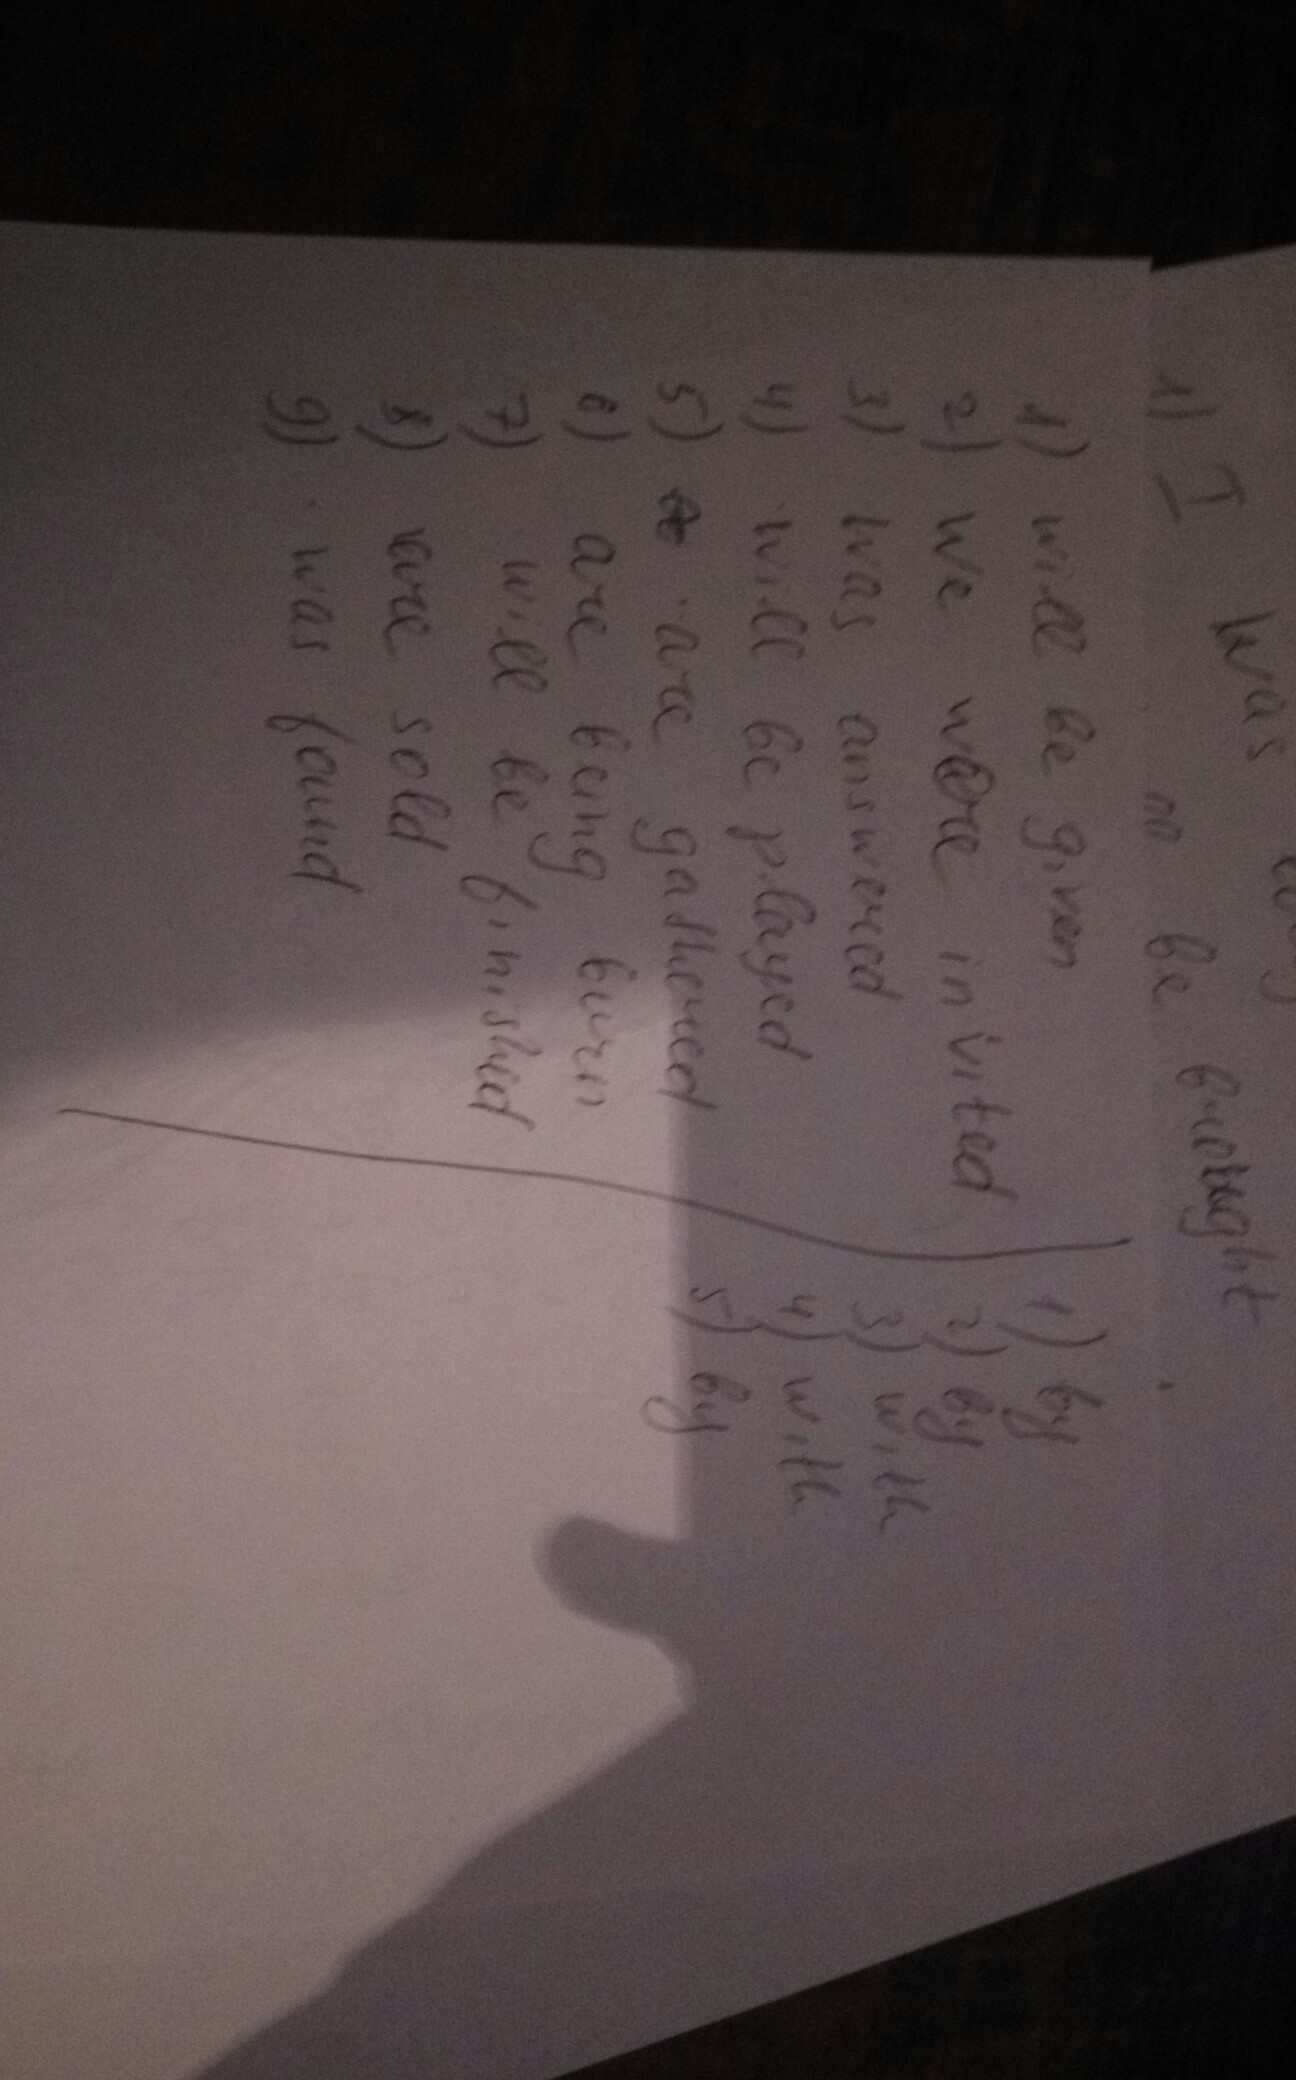 was
1) I no be brought
1) will be given
2) we were invited
3) was answered
4) will be played
5) are gathered
6) are being burn
7) will be finished
8) are sold
9) was found
1) by
2) by
3) with
4) with
5) by